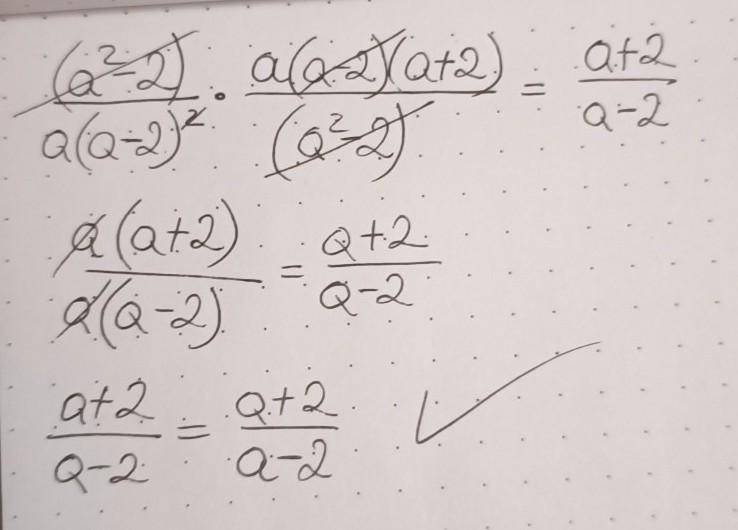 (a²-2)/a(a-2)² · a(a-2)(a+2)/(a²-2) = a+2/a-2
a(a+2)/a(a-2) = a+2/a-2
a+2/a-2 = a+2/a-2 ✓